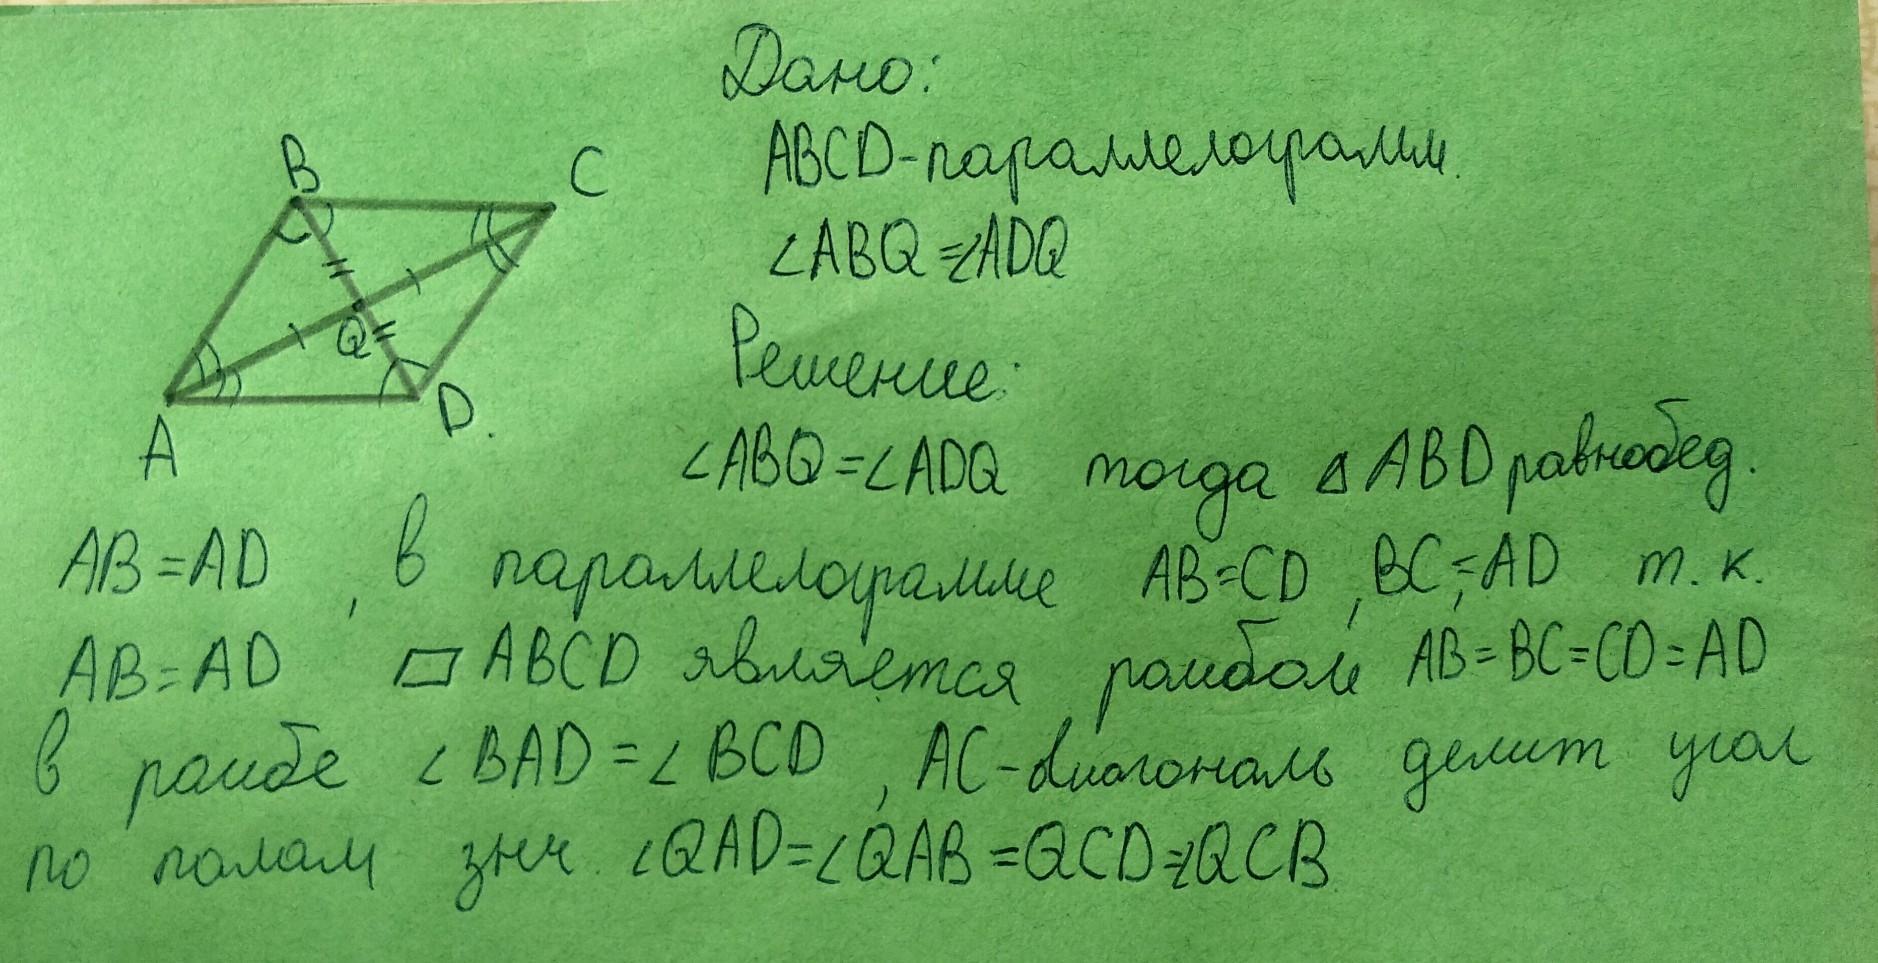 Дано:
B
C
ABCD-параллелограмм.
∠ABQ=∠ADQ
Q
Решение:
A
D.
∠ABQ=∠ADQ тогда △ABD равнобед.
AB=AD, в параллелограмме AB=CD, BC=AD т.к.
AB=AD ▱ABCD является ромбом AB=BC=CD=AD
в ромбе ∠BAD=∠BCD, AC-диагональ делит угол
по палам знч. ∠QAD=∠QAB=QCD=∠QCB